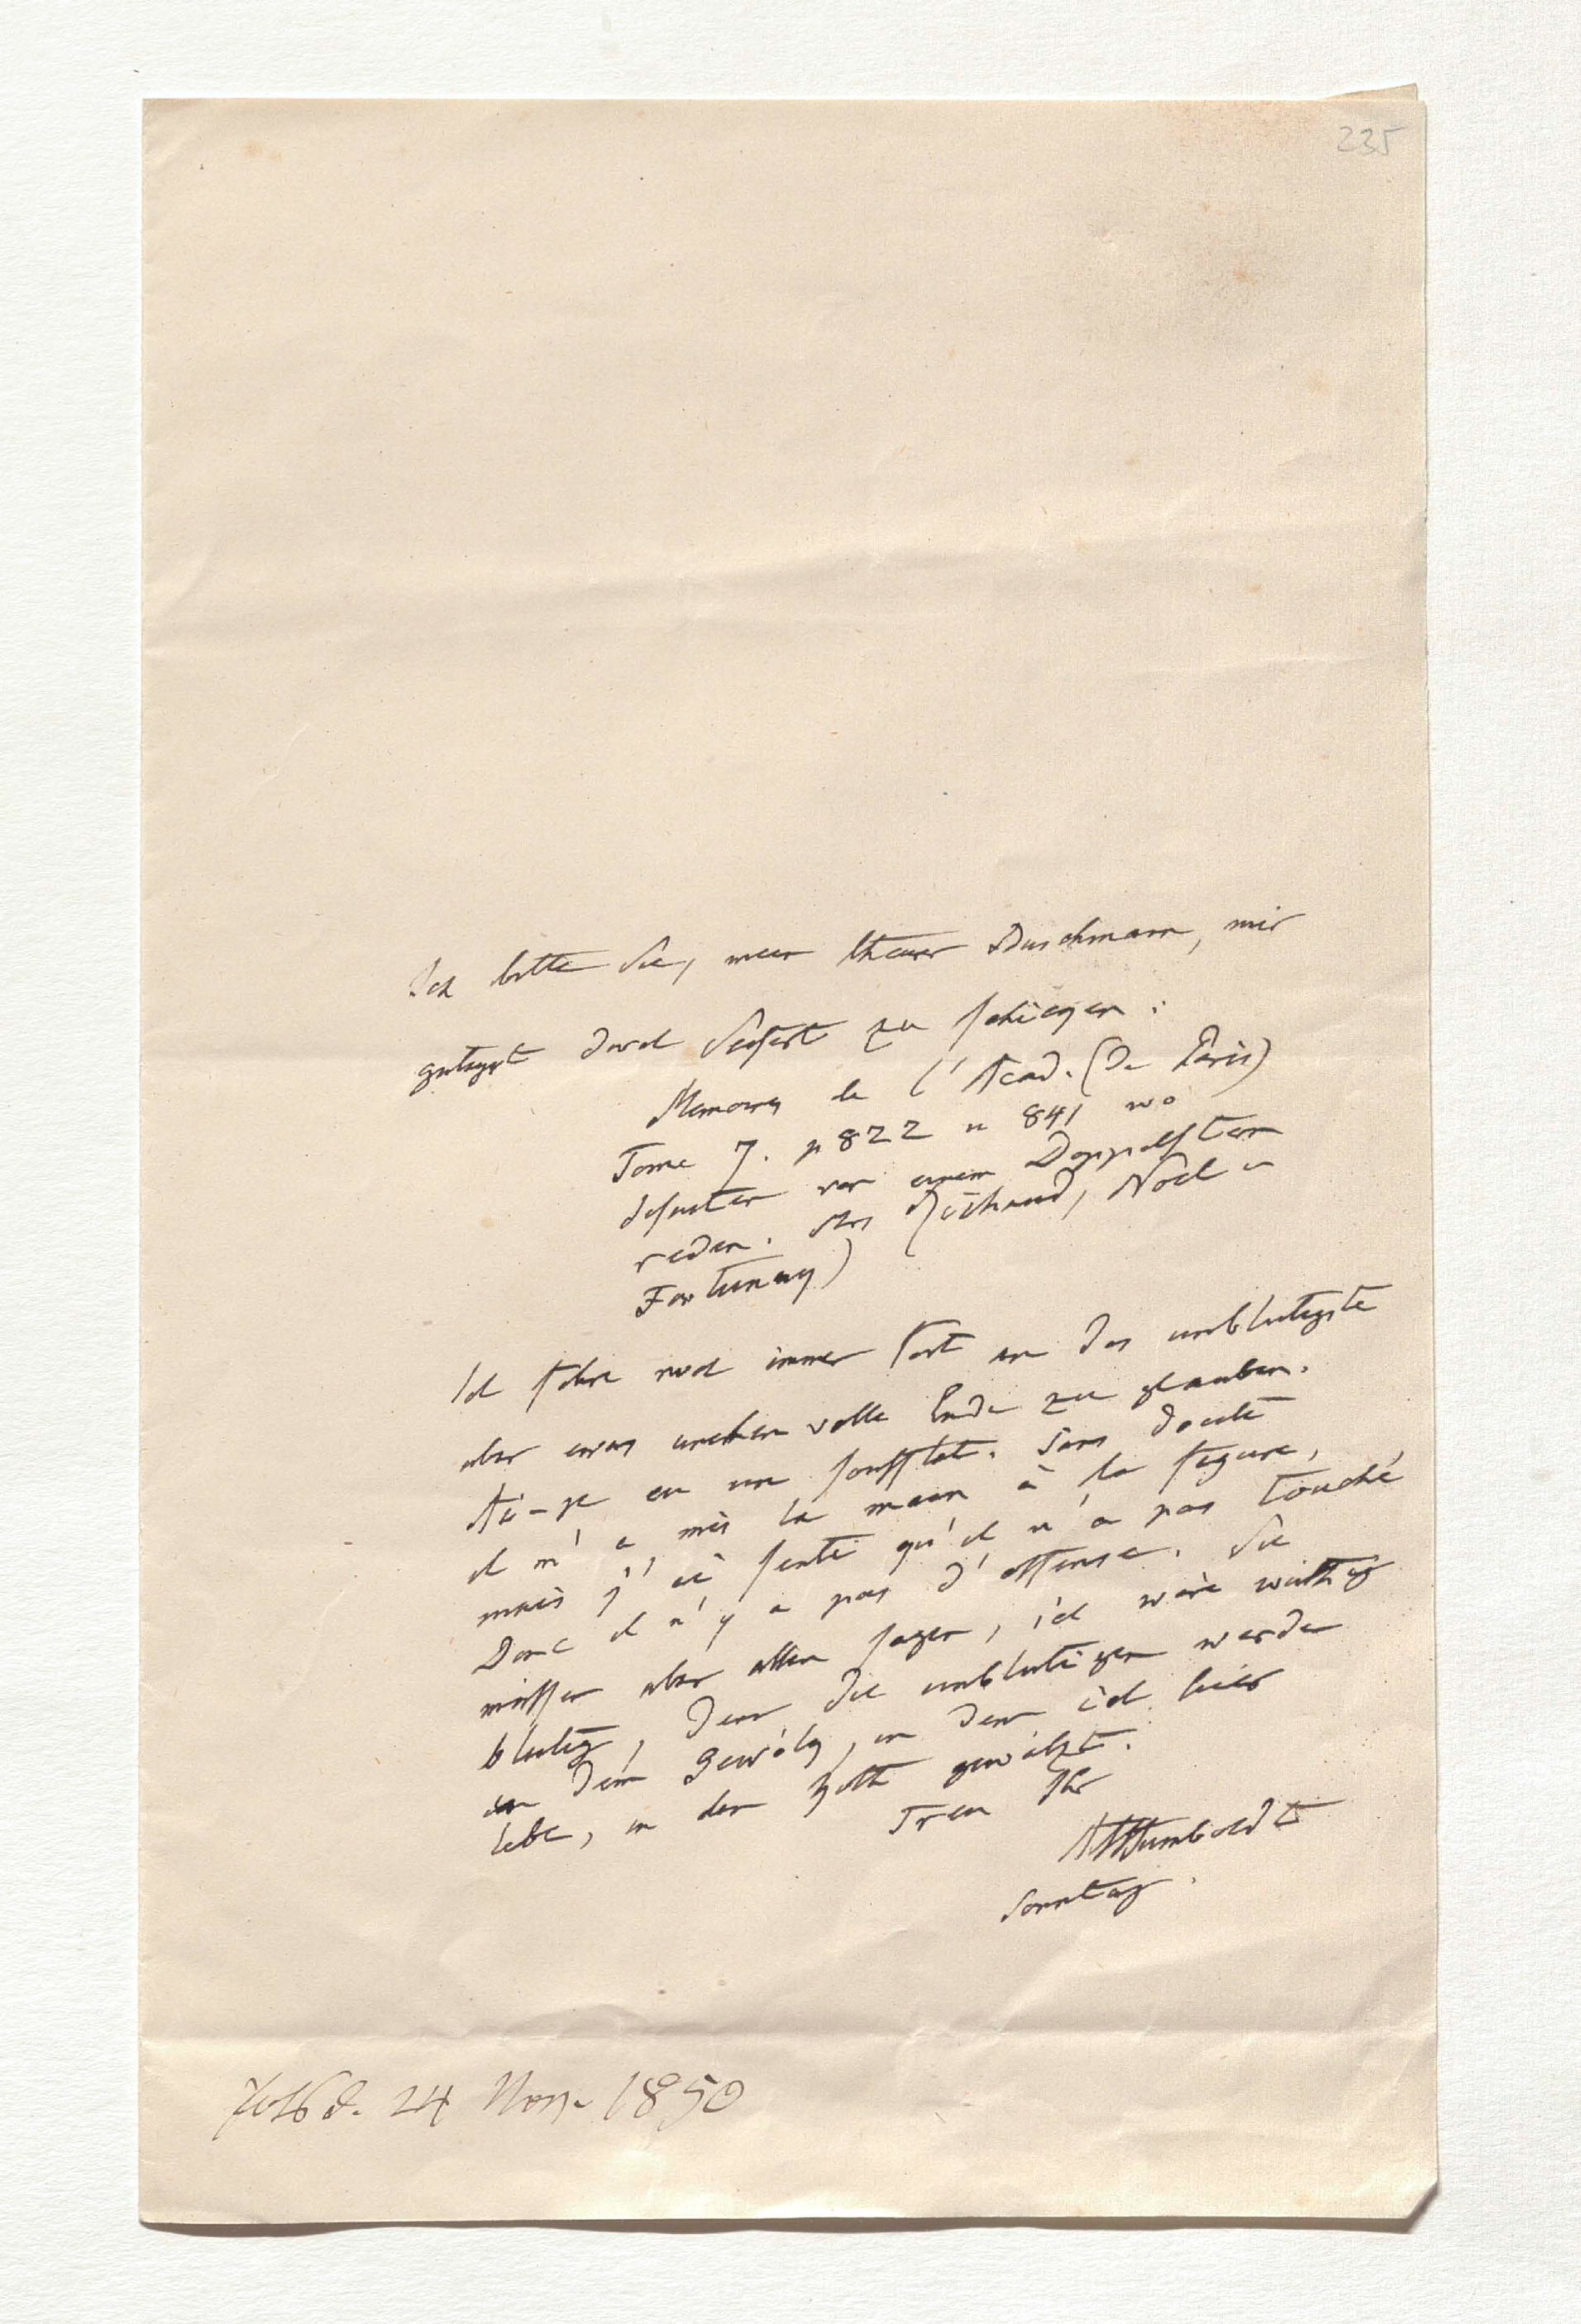 235
Ich bitte Sie, mein theurer Buschmann, mir
gütigst durch Seifert zu schikken:
Memoires de l'Acad. (De Paris)
Tome 7. p 822 u 841 wo
Jesuiten von einem Doppelstern
reden. (Richaud, Noel u
Fontenay)
Ich fahre noch immer fort an das unblutigste
aber ehrenvolle Ende zu glauben.
Ai-je eu un soufflet. Sans doute
il m'a mis la main à la figure,
mais j'ai senti qu'il n'a pas touché
Donc il n'y a pas d'offense. Sie
müssen aber allen sagen, ich wäre wüthig
blutig, denn die unblutigen werden
in dem Gewölg, in dem ich hier
lebe, in der gewälzt.
Treu Ihr
AvHumboldt
Sonntag.
d. 24 Nov. 1850